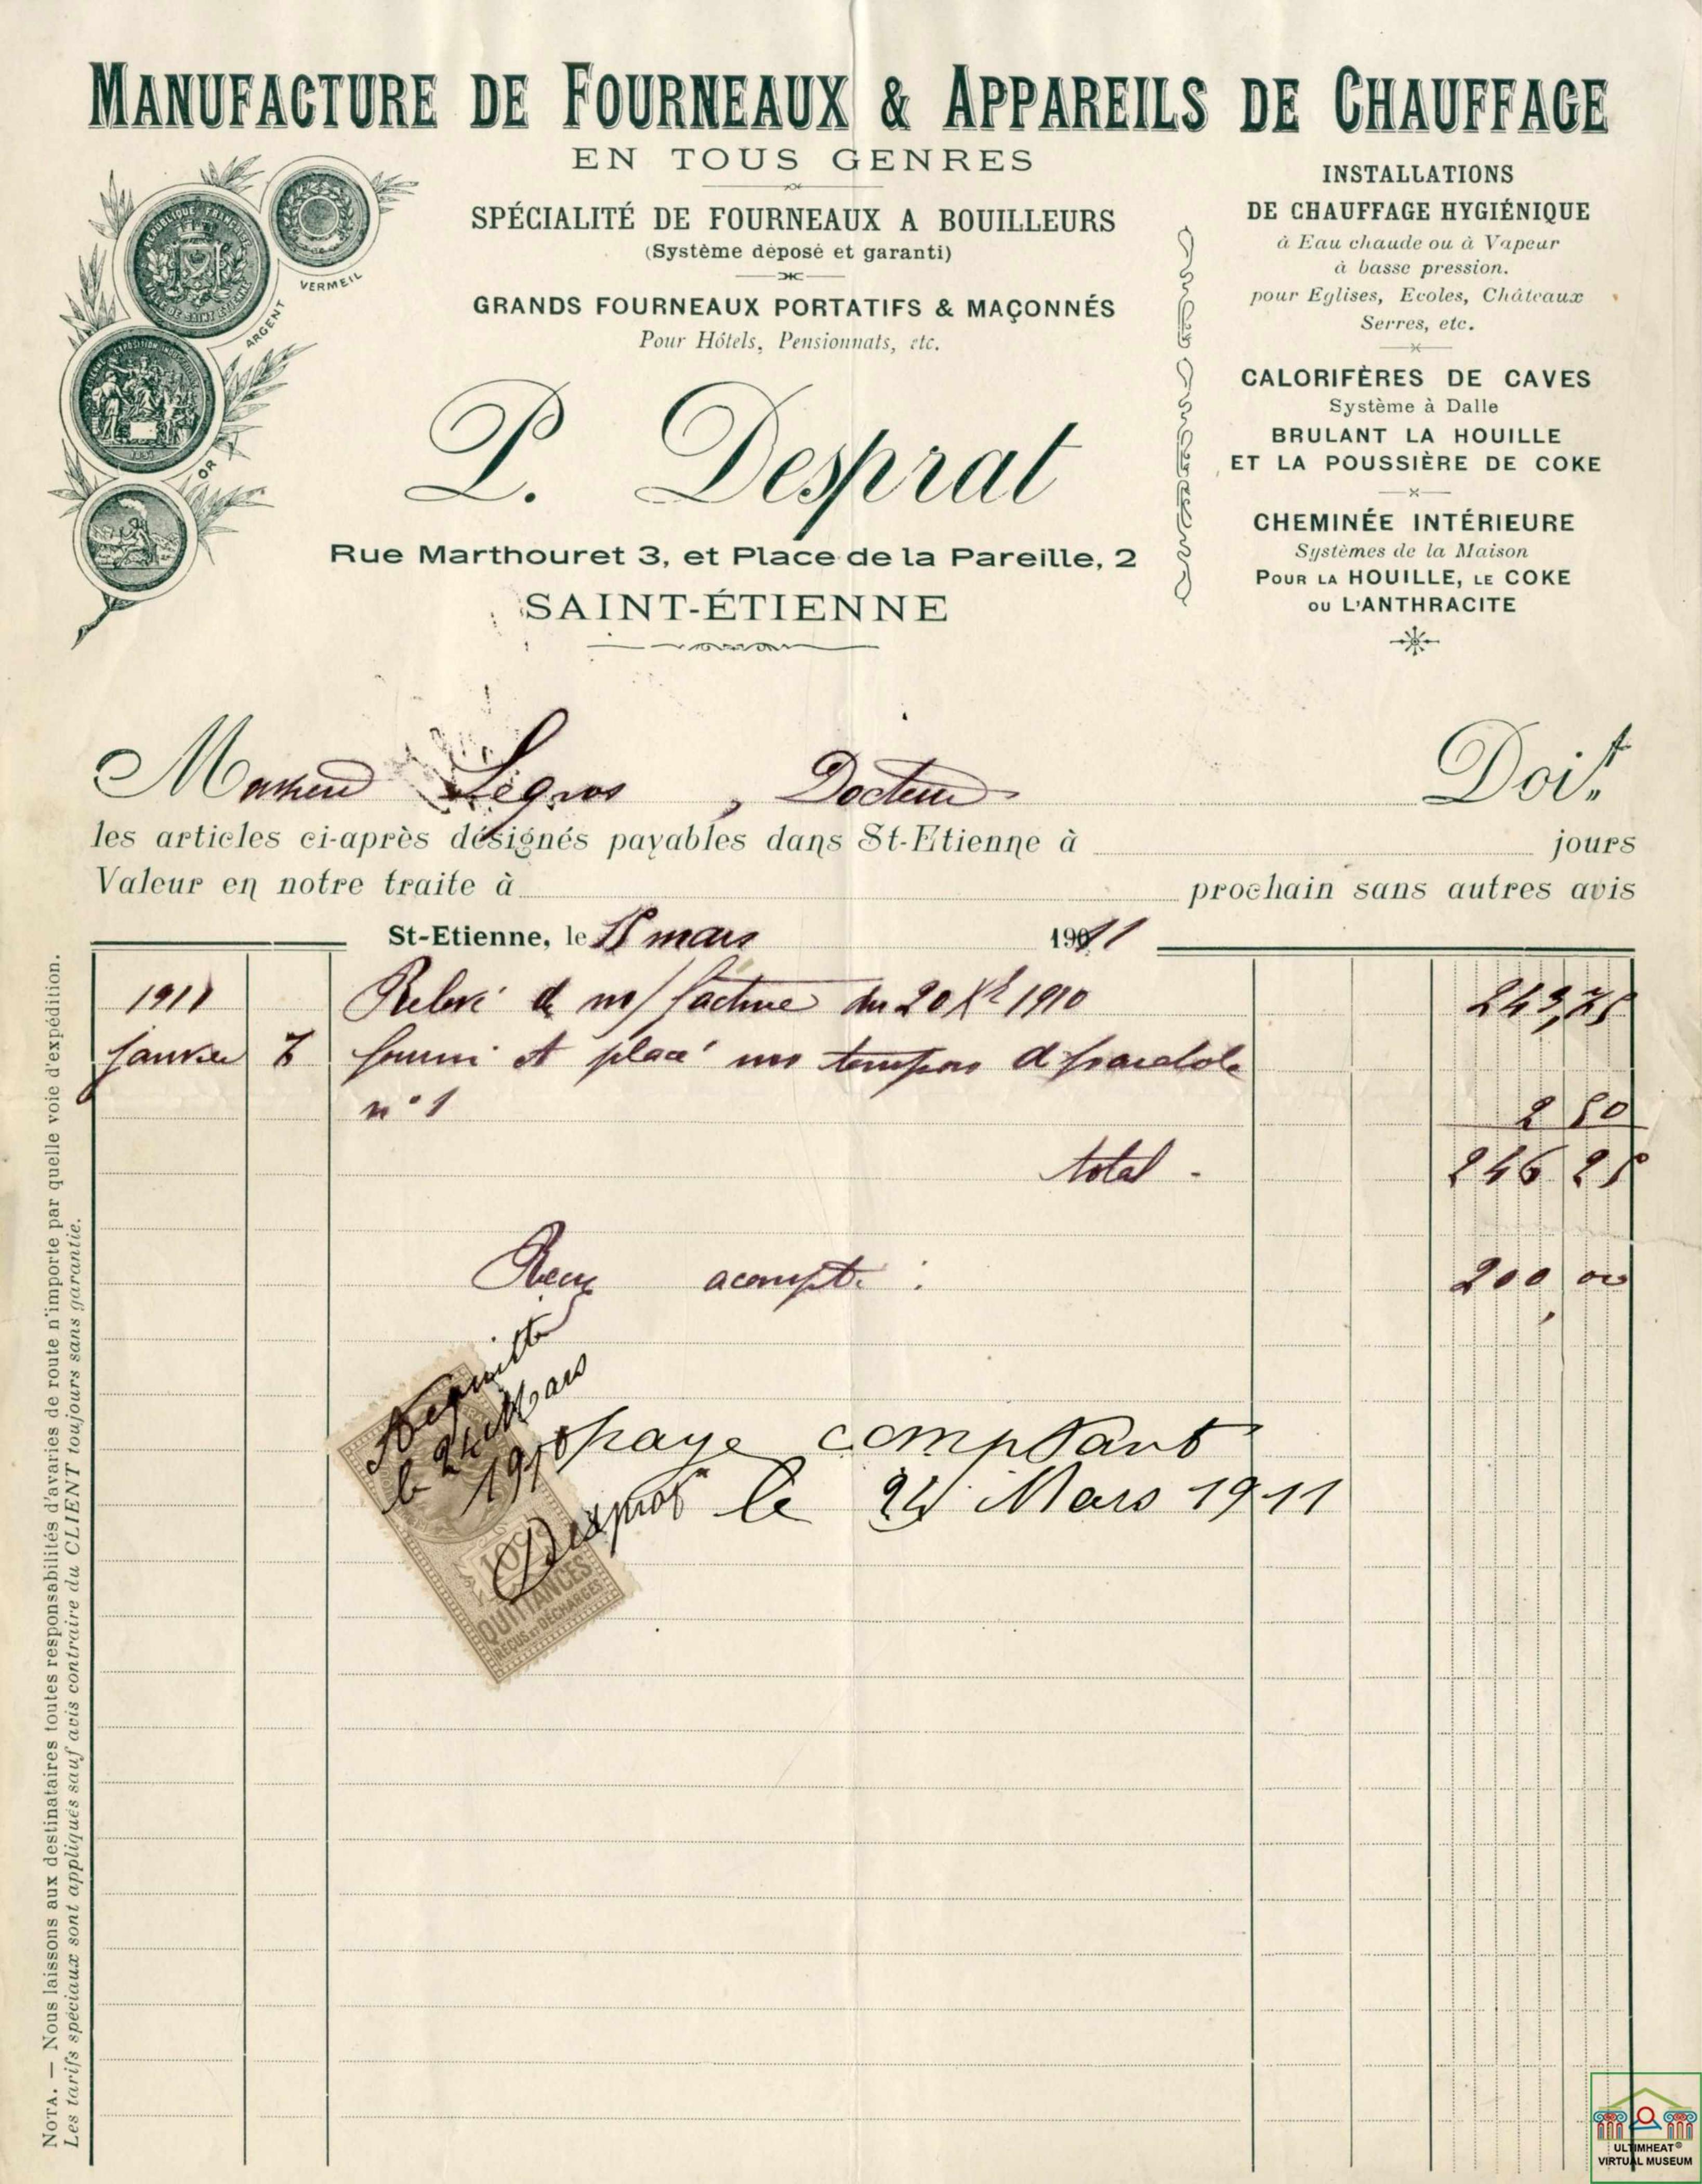 MANUFACTURE DE FOURNEAUX & APPAREILS DE CHAUFFAGE
EN TOUS GENRES
SPÉCIALITÉ DE FOURNEAUX A BOUILLEURS
(Système déposé et garanti)
GRANDS FOURNEAUX PORTATIFS & MAÇONNÉS
Pour Hôtels, Pensionnats, etc.
P. Desprat
Rue Marthouret 3, et Place de la Pareille, 2
SAINT-ÉTIENNE
VERMEIL
ARGENT
OR
RÉPUBLIQUE FRANÇAISE
INSTALLATIONS
DE CHAUFFAGE HYGIÉNIQUE
à Eau chaude ou à Vapeur
à basse pression.
pour Eglises, Ecoles, Châteaux
Serres, etc.
CALORIFÈRES DE CAVES
Système à Dalle
BRULANT LA HOUILLE
ET LA POUSSIÈRE DE COKE
CHEMINÉE INTÉRIEURE
Systèmes de la Maison
POUR LA HOUILLE, LE COKE
OU L'ANTHRACITE
Monsieur Legros, Docteur Doit
les articles ci-après désignés payables dans St-Etienne à jours
Valeur en notre traite à prochain sans autres avis
St-Etienne, le mars 1911
1911 Relevé de no/ facture du 20 Xbre 1910 243,75
Janvier 7 fourni et placé un tampon
n° 1 2 50
total - 246 25
Recu acompte : 200 00
paye comptant
le 24 Mars 1911
Acquitté
le 24 Mars
Desprat
10c
QUITTANCES
REÇUS ET DÉCHARGES
NOTA. — Nous laissons aux destinataires toutes responsabilités d'avaries de route n'importe par quelle voie d'expédition.
Les tarifs spéciaux sont appliqués sauf avis contraire du CLIENT toujours sans garantie.
ULTIMHEAT®
VIRTUAL MUSEUM